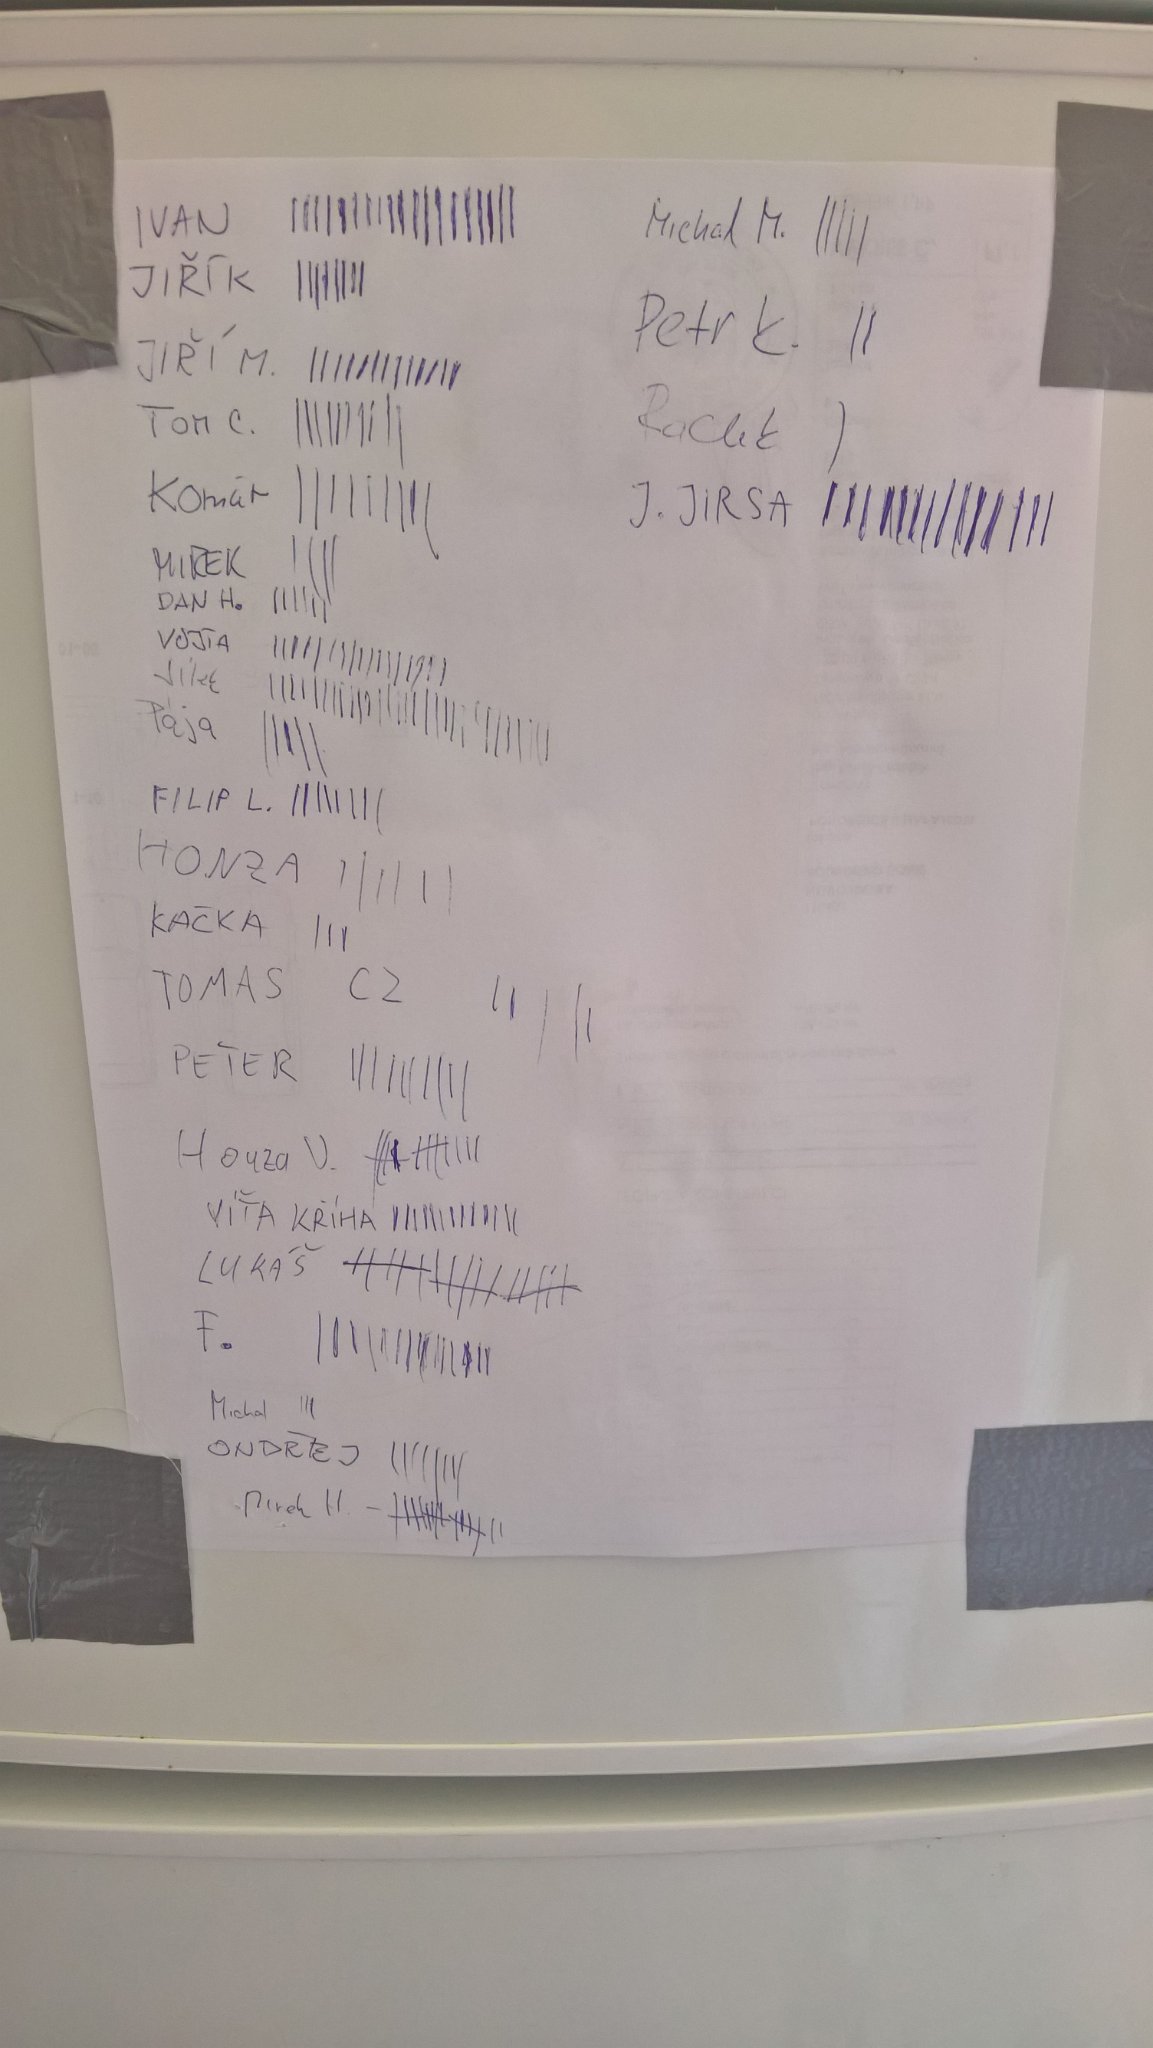 IVAN
JIŘÍK
JIŘÍ M.
Tom C.
Komár
MIREK
DAN H.
VOJTA
Pája
FILIP L.
HONZA
KAČKA
TOMAS CZ
PETER
Honza V.
VÍŤA KŘÍHA
LUKÁŠ
F.
Michal
ONDŘEJ
Mirek H. -
Michal M.
Petr K.
J. JIRSA